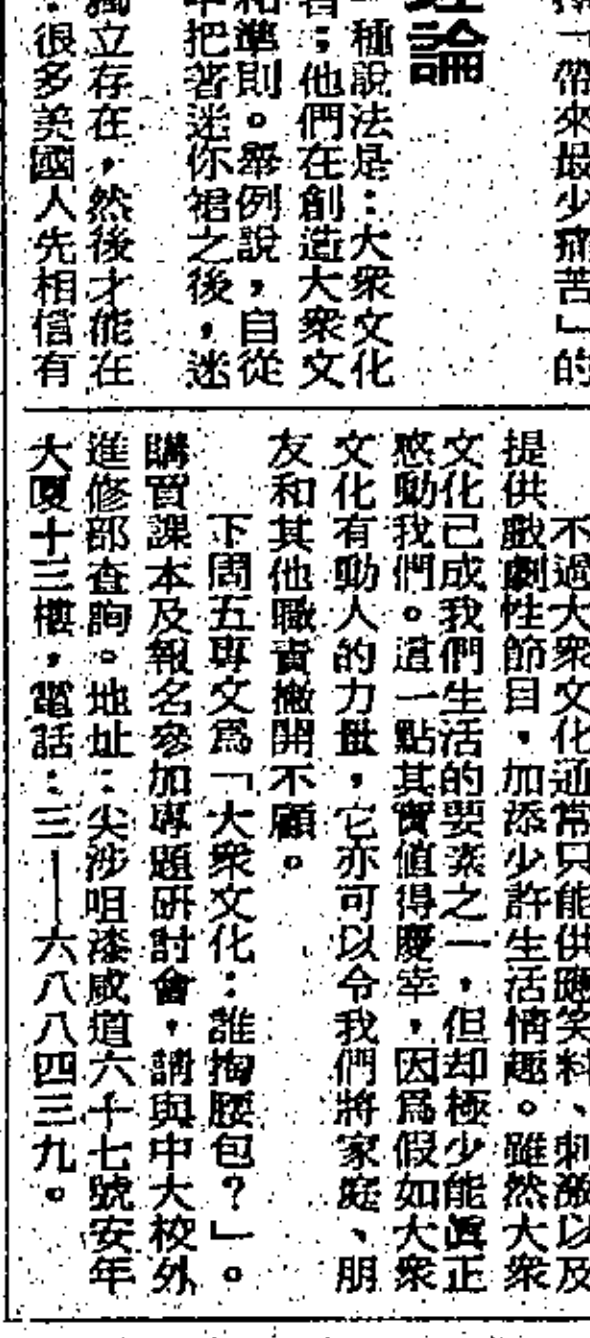 擇一帶來最少痛苦」的
理論
一種說法是：大衆文化
者；他們在創造大衆文
和準則。舉例說，自從
年把著迷你裙之後，迷
獨立存在，然後才能在
：很多美國人先相信有
不過大衆文化通常只能供應笑料、刺激以及
提供戲劇性節目，加添少許生活情趣。雖然大衆
文化已成我們生活的要素之一，但却極少能眞正
感動我們。這一點其實值得慶幸，因爲假如大衆
文化有動人的力量，它亦可以令我們將家庭、朋
友和其他職責撇開不顧。
下周五專文爲「大衆文化：誰掏腰包？」。
購買課本及報名參加專題研討會，請與中大校外
進修部查詢。地址：尖沙咀漆咸道六十七號安年
大厦十三樓，電話：三——六八八四三九。